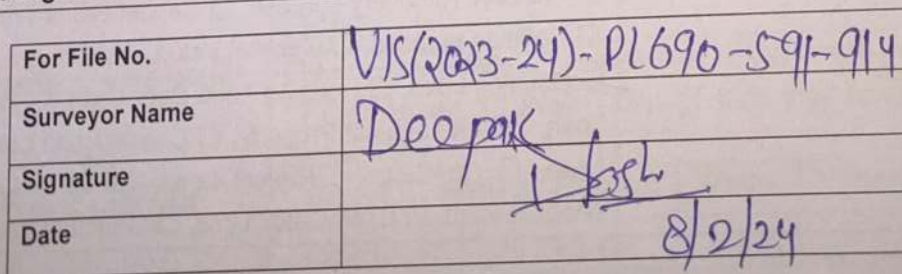 For File No. VIS(2023-24)-PL690-591-914
Surveyor Name Deepak
Signature
Date 8/2/24